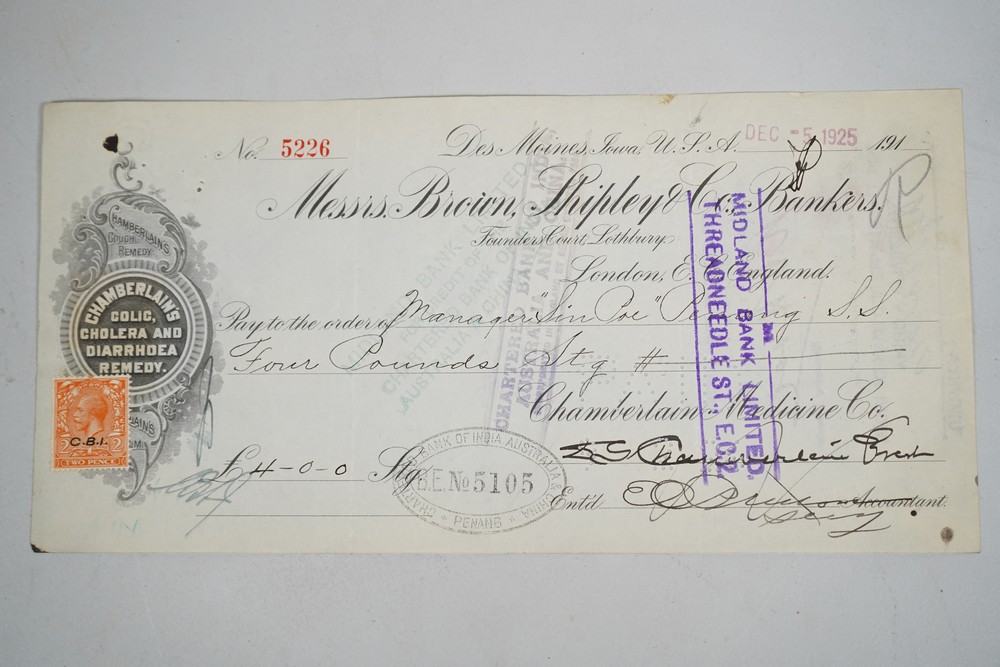 No. 5226
Des Moines, Iowa, U.S.A. DEC -5 1925 191
Messrs. Brown, Shipley & Co. Bankers.
Founders Court, Lothbury.
London, E.C. England.
Pay to the order of Manager "Sin Poe" Penang S.S.
Four Pounds Stg #
Chamberlain Medicine Co.
£4-0-0 Stg.
Chamberlain Prest
Ent'd
Accountant.
CHAMBERLAIN'S
COUGH
REMEDY
CHAMBERLAIN'S
COLIC,
CHOLERA AND
DIARRHOEA
REMEDY.
C.B.I.
2 2
TWO PENCE
CHARTERED BANK OF INDIA AUSTRALIA & CHINA
B.E. No 5105
* PENANG *
M
MIDLAND BANK LIMITED.
THREADNEEDLE ST., E.C.2.